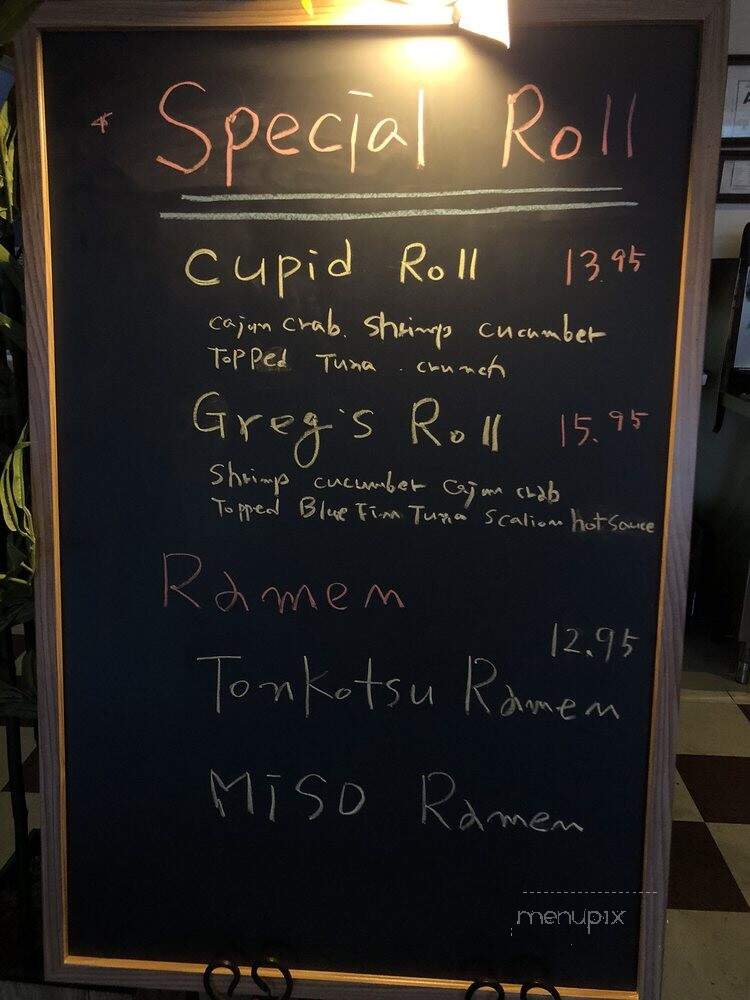 Special Roll
Cupid Roll 13.95
cajun crab. shrimp cucumber
Topped Tuna . crunch
Greg's Roll 15.95
shrimp cucumber cajun crab
Topped Blue Fin Tuna Scalion hot sauce
Ramen
12.95
Tonkotsu Ramen
MISO Ramen
menupix